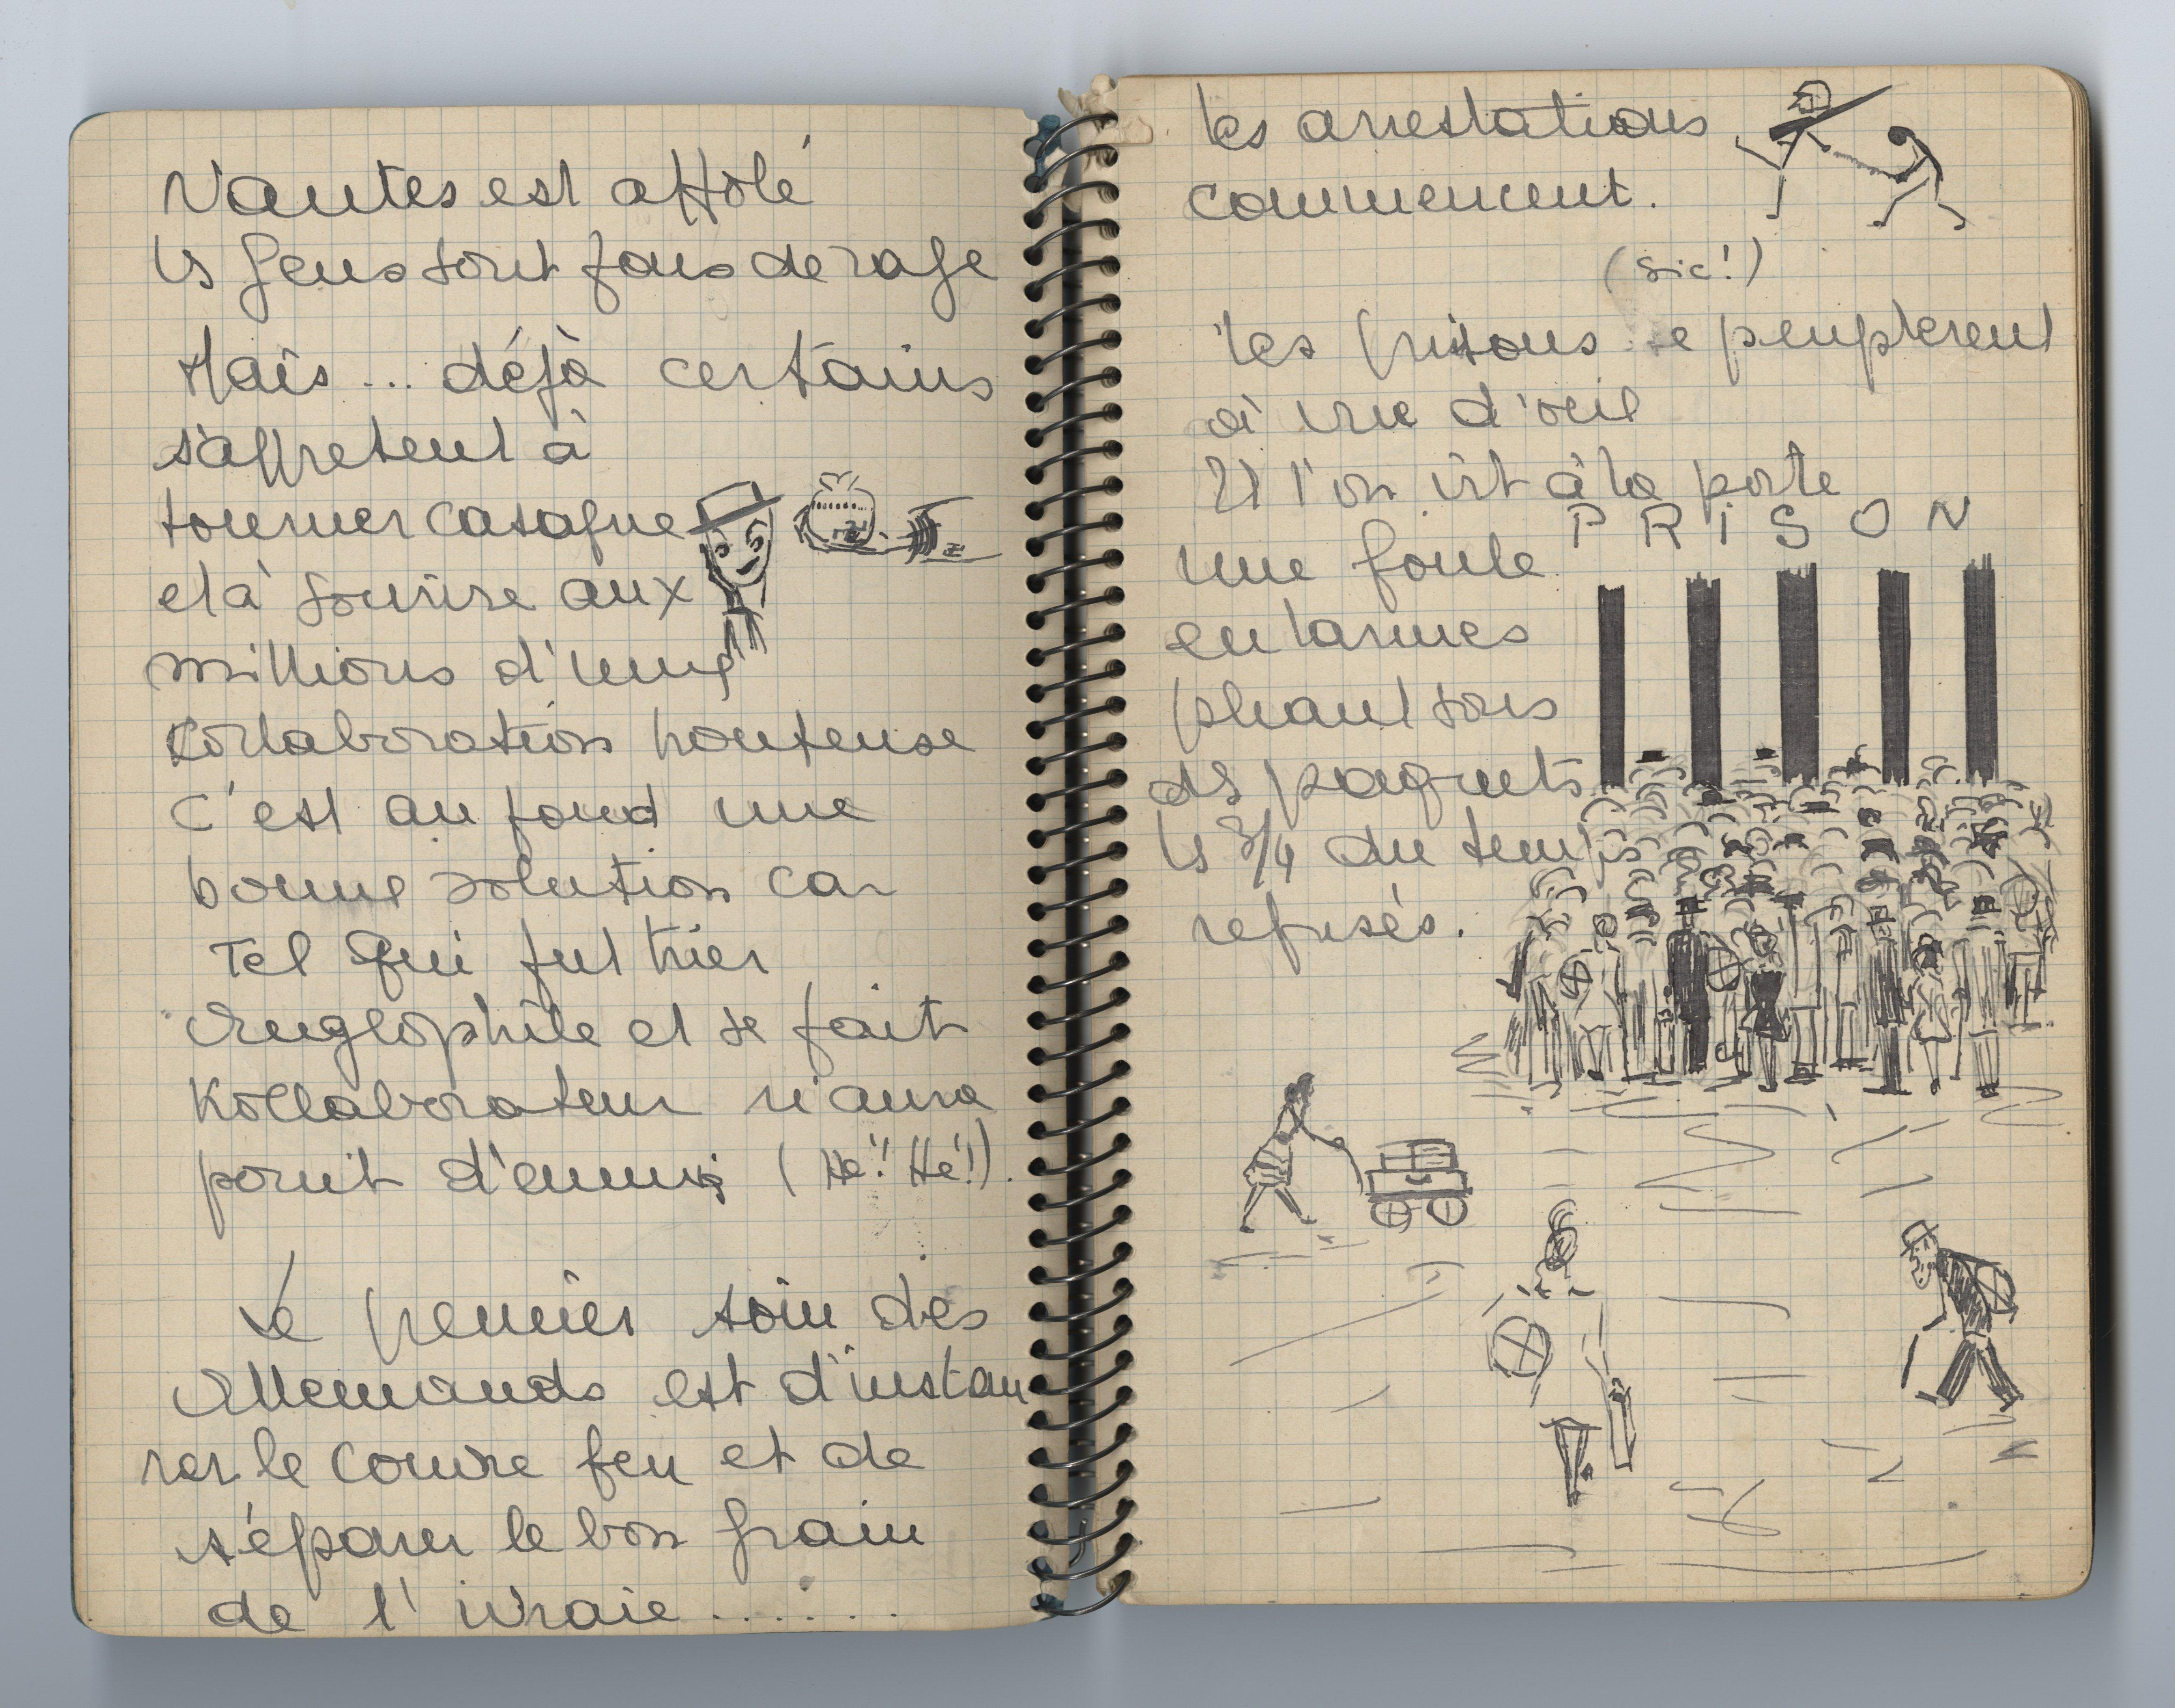 Nantes est affolé
les gens sont fous de rage
Mais ... déjà certains
s'apprètent à
tourner casaque
et à sourire aux
millions d'une
Kollaboration honteuse
C'est au fond une
bonne solution car
Tel qui fut hier
Anglophile et se fait
Kollaborateur n'aura
point d'ennuis (Hé! Hé!).
Le premier soin des
Allemands est d'instau
rer le couvre feu et de
séparer le bon grain
de l'ivraie .......
les arrestations
commencent.
(sic!)
les prisons se peuplèrent
à vue d'oeil
Et l'on vit à la porte
PRISON
une foule
en larmes
pliant sous
des paquets
les 3/4 du temps
refusés.